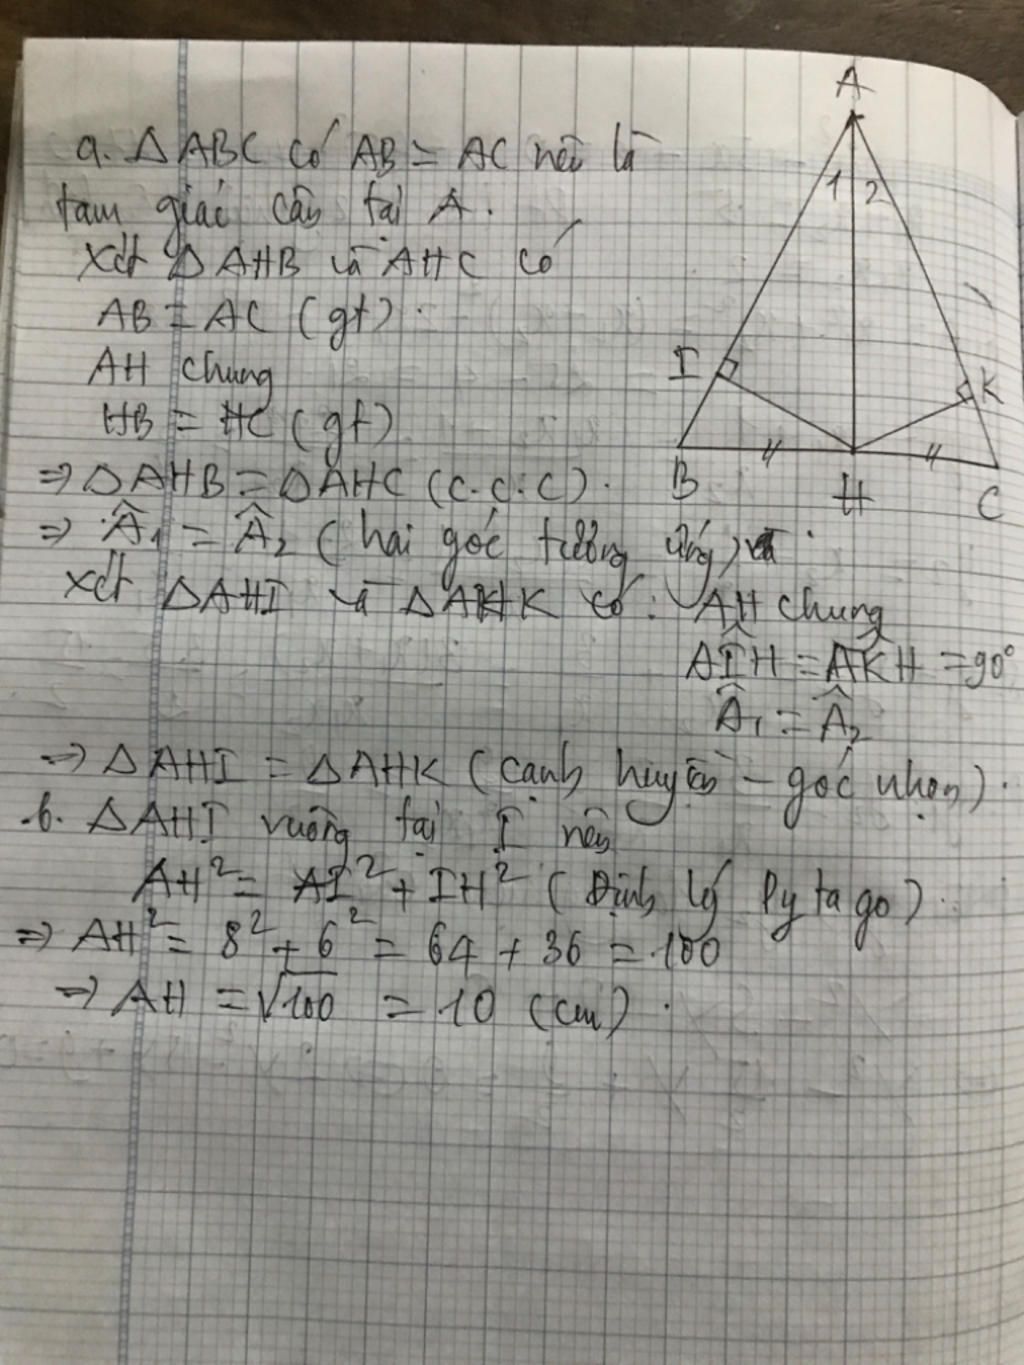 A
a. △ABC có AB = AC nên là
tam giác cân tại A.
1 2
Xét △AHB và AHC có
AB = AC (gt).
I
AH chung
K
HB = HC (gt)
B
H
C
⇒ △AHB = △AHC (c.c.c).
⇒ Â₁ = Â₂ (hai góc tương ứng)
Xét △AHI và △AHK có: AH chung
AÎH = AK̂H = 90°
Â₁ = Â₂
⇒ △AHI = △AHK (cạnh huyền - góc nhọn).
b. △AHI vuông tại I nên
AH² = AI² + IH² (Định lý Pytago).
⇒ AH² = 8² + 6² = 64 + 36 = 100
⇒ AH = √100 = 10 (cm).